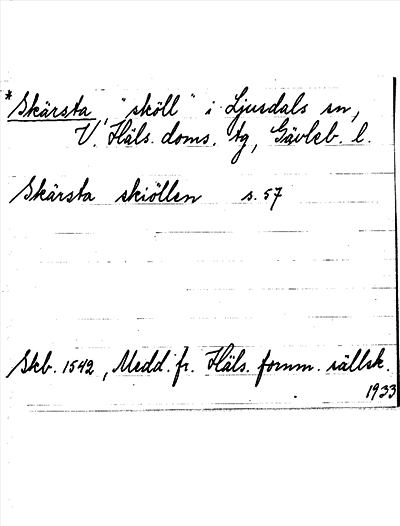 *Skärsta, "sköll" i Ljusdals sn,
V. Häls. doms. tg, Gävleb. l.
Skärsta skiöllen s. 57
Skb. 1542, Medd. fr. Häls. fornm. sällsk.
1933